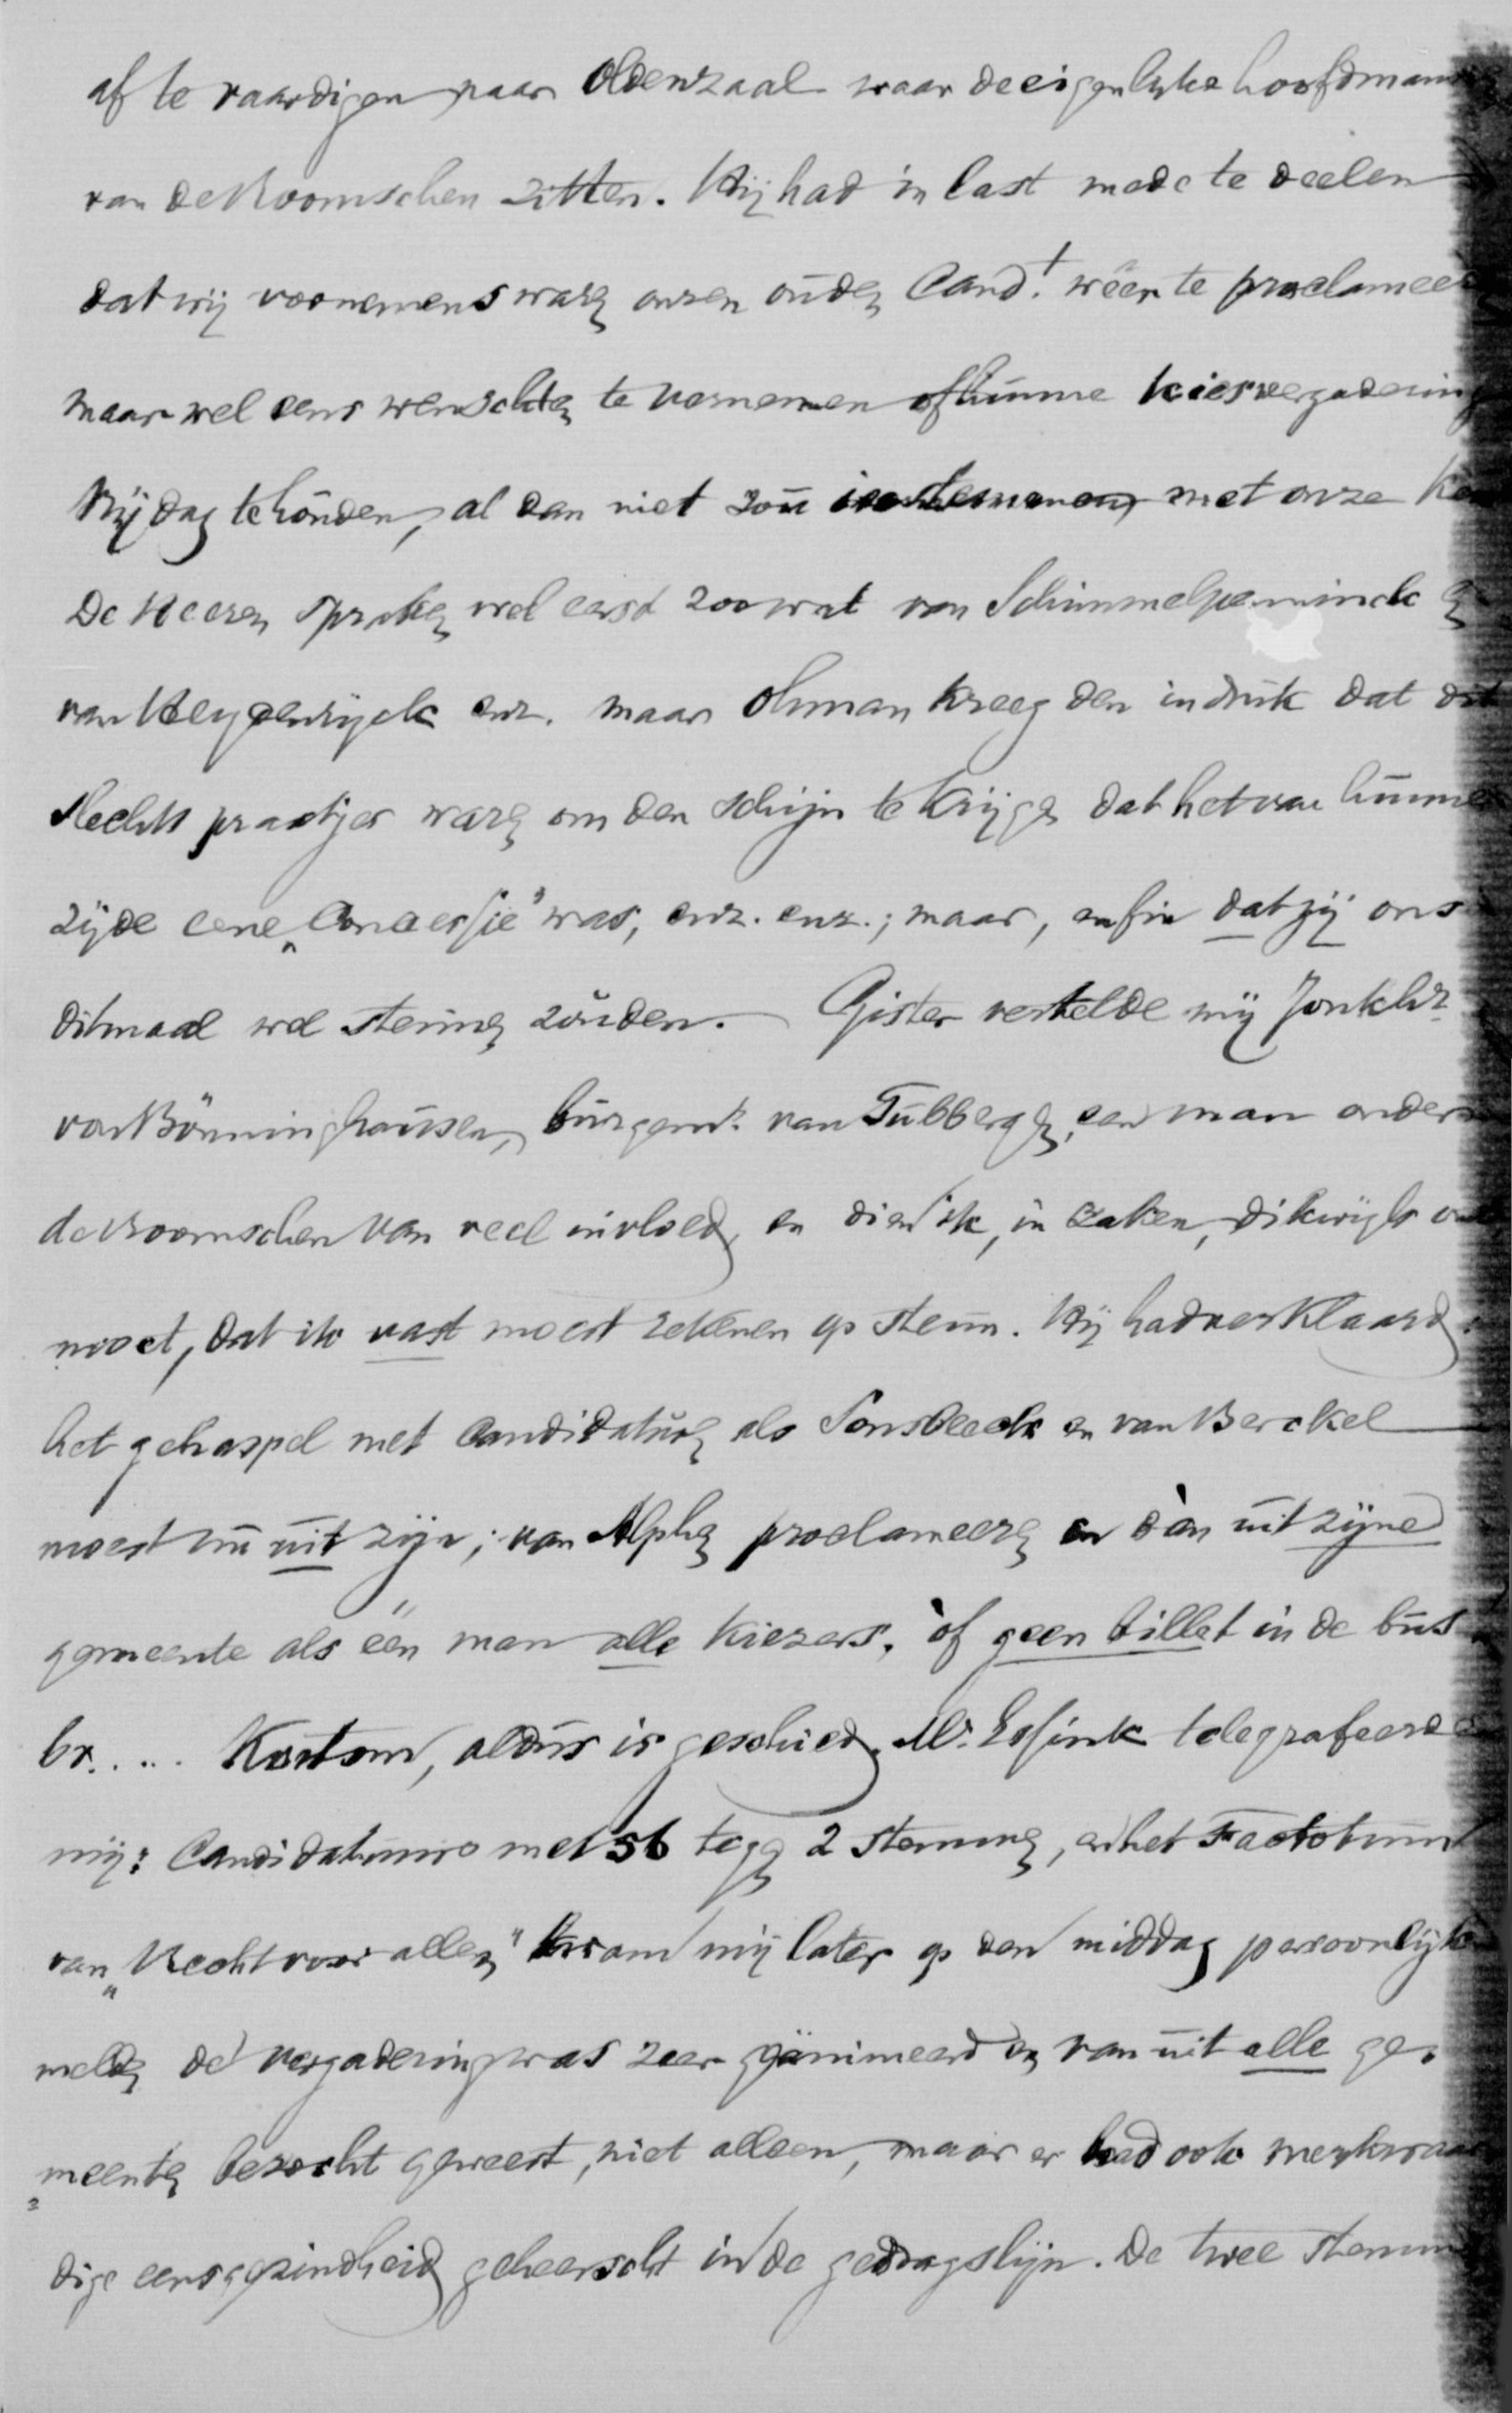 af te vaardigen naar Oldenzaal waar de eigenlyke hoofdmann
van de Roomschen zitten. Hij had in last mede te deelen
dat wij voornemens waren onzen ouden Candt. wéér te proclamee
maar wel eens wenschten te vernemen of hunne kiesvergadering
Vrijdag te houden, al dan niet zou instemmen met onze
De Heeren spraken wel eerst zoowat van Schimmelpenninck en
van Heyvenryck enz. maar Ohman kreeg den indruk dat dit
slechts praatjes waren om den schijn te krijgen dat het van hunne
zijde eene „Concessie" was, enz. enz.; maar, enfin dat zij ons
ditmaal wel steunen zouden. Gister vertelde mij Jonkhr
von Bönninghausen, burgemr. van Tubbergen, een man onder
de Roomschen van veel invloed, en dien ik, in zaken, dikwijls
moet, dat ik vast moest rekenen op steun. Hij had verklaard:
het gehaspel met Candidaturen als Sonsbeeck en van Berckel
moest nu uit zijn; van Alphen proclameeren en dàn uit zijne
gemeente als één man alle kiezers, òf geen billet in de bus
br.... Kortom, aldus is geschied. Mr. Essink telegrafeerde
mij: Candidatuur met 56 tegen 2 stemmen, en het Factotum
van „Recht voor allen" kwam mij later op den middag persoonlijk
melden de vergadering was zeer geänimeerd en van uit alle ge-
meenten bezocht geweest, niet alleen, maar er had ook merkwaar
dige eensgezindheid geheerscht in de gedragslijn. De twee stemm